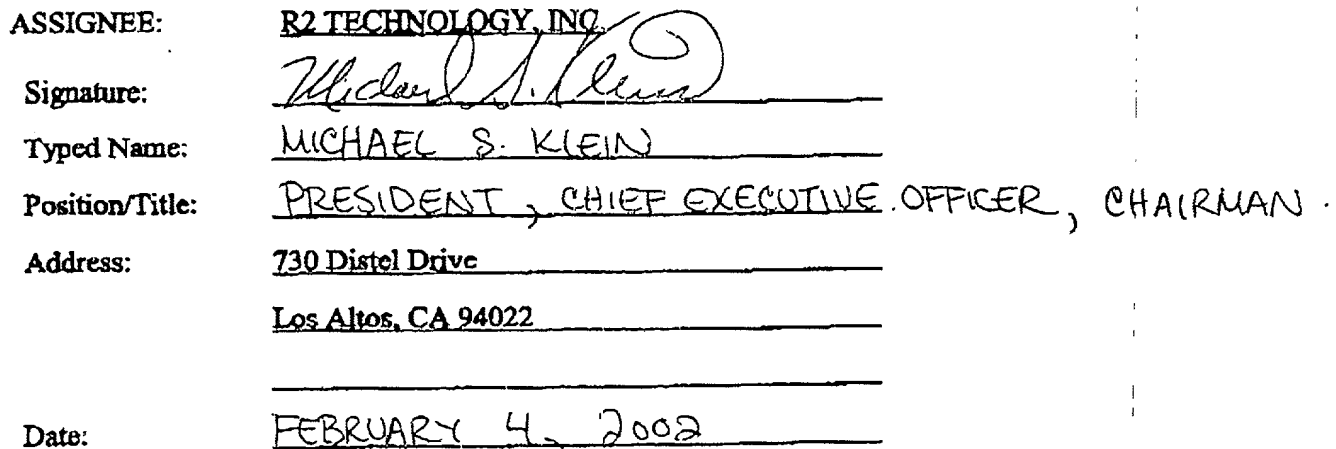 ASSIGNEE: R2 TECHNOLOGY, INC.
Signature: Michael S. Klein
Typed Name: MICHAEL S. KLEIN
Position/Title: PRESIDENT, CHIEF EXECUTIVE OFFICER, CHAIRMAN.
Address: 730 Distel Drive
Los Altos, CA 94022
Date: FEBRUARY 4, 2002